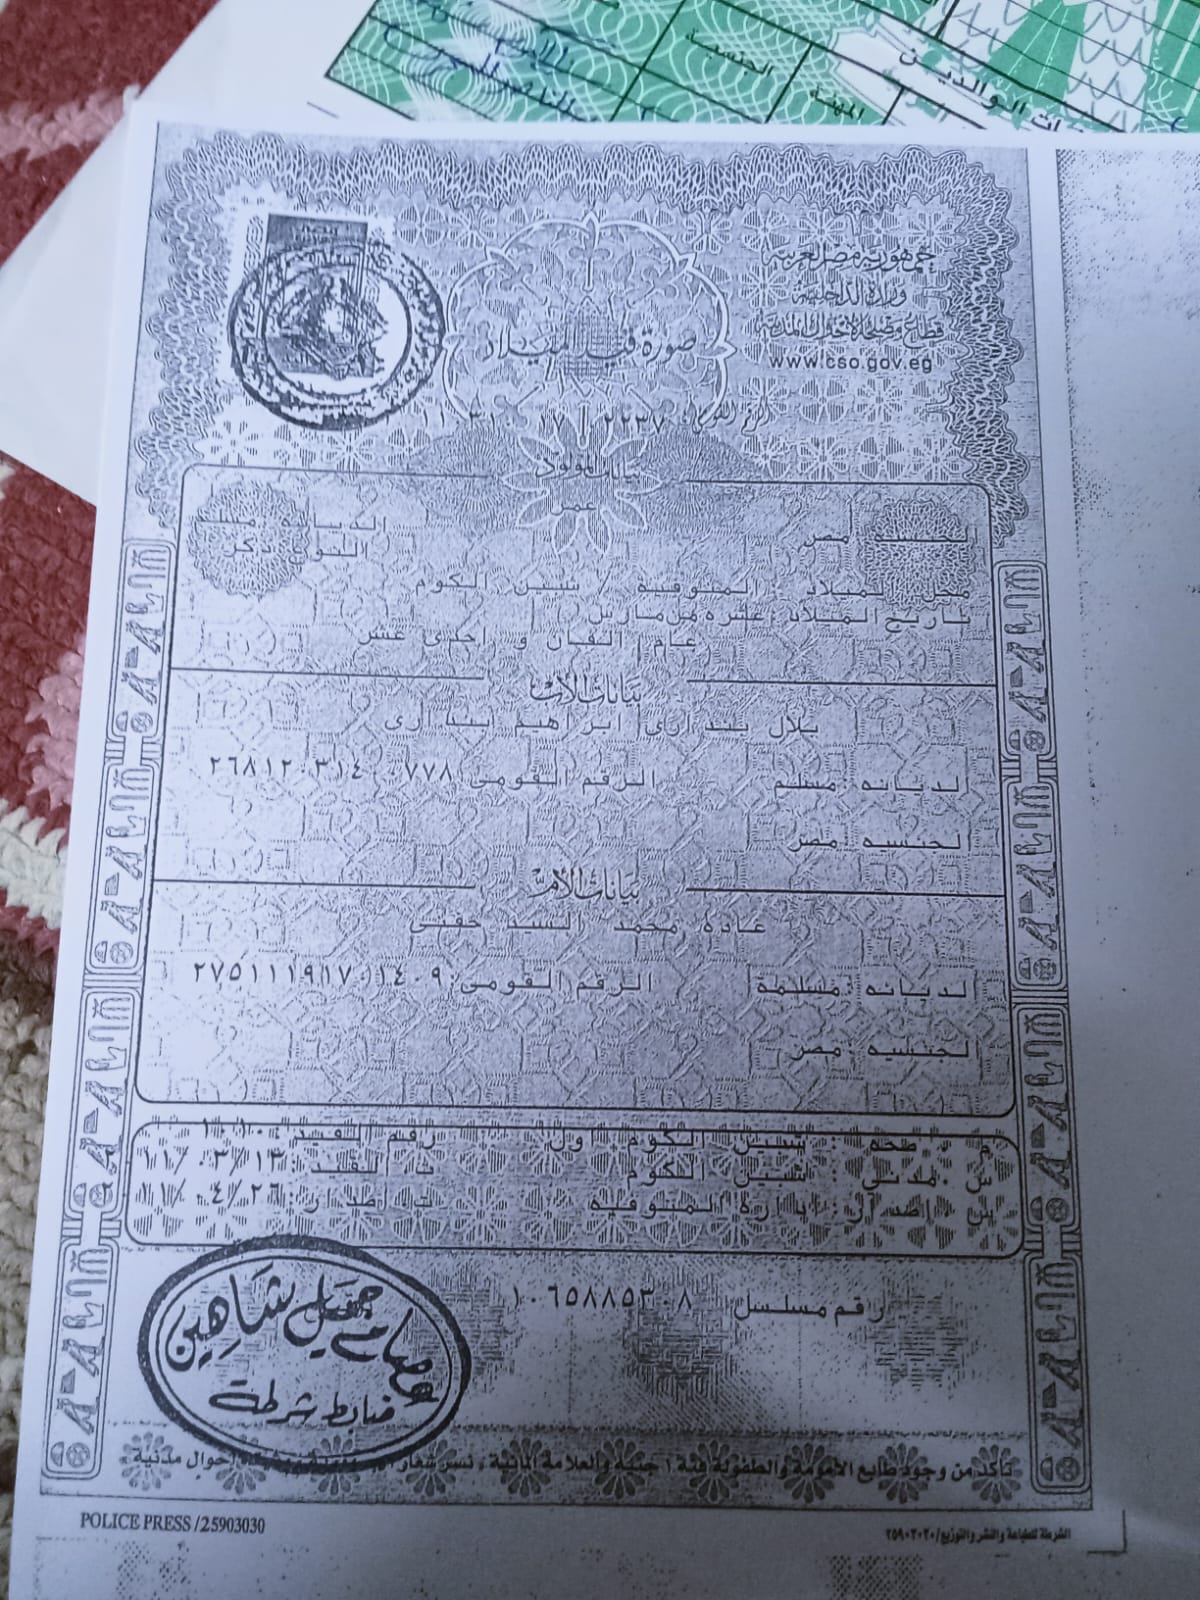 الجنسية
المهنة
جمهورية مصر العربية
وزارة الداخلية
قطاع مصلحة الأحوال المدنية
www.cso.gov.eg
صورة قيد الميلاد
بيانات المولود
عمر
الجنسيه : مصر
الديانه : مسلم
النوع : ذكر
محل الميلاد : المنوفية / شبين الكوم
تاريخ الميلاد : عشره من مارس
عام الفان و احدى عشر
بيانات الأب
بلال بندارى ابراهيم بندارى
لديانه : مسلم الرقم القومى :
لجنسيه : مصر
بيانات الأم
غاده محمد السيد حفنى
لديانه : مسلمة الرقم القومى :
لجنسيه : مصر
م . صحه : شبين الكوم اول رقم القيد :
س . مدنى : شبين الكوم ت . القيد : ١١/٠٣/١٣
س . اصدار : ادارة المنوفيه ت . اصدار : ١١/٠٤/٢٦
رقم مسلسل ١٠٦٥٨٨٥٣٠٨
جميل شاهين
ضابط شرطة
تأكد من وجود طابع الأمومة والطفولة فئة ١ جنيه والعلامة المائية ، نسر شعار أحوال مدنية
POLICE PRESS /25903030
الشرطة للطباعة والنشر والتوزيع/٢٥٩٠٣٠٣٠